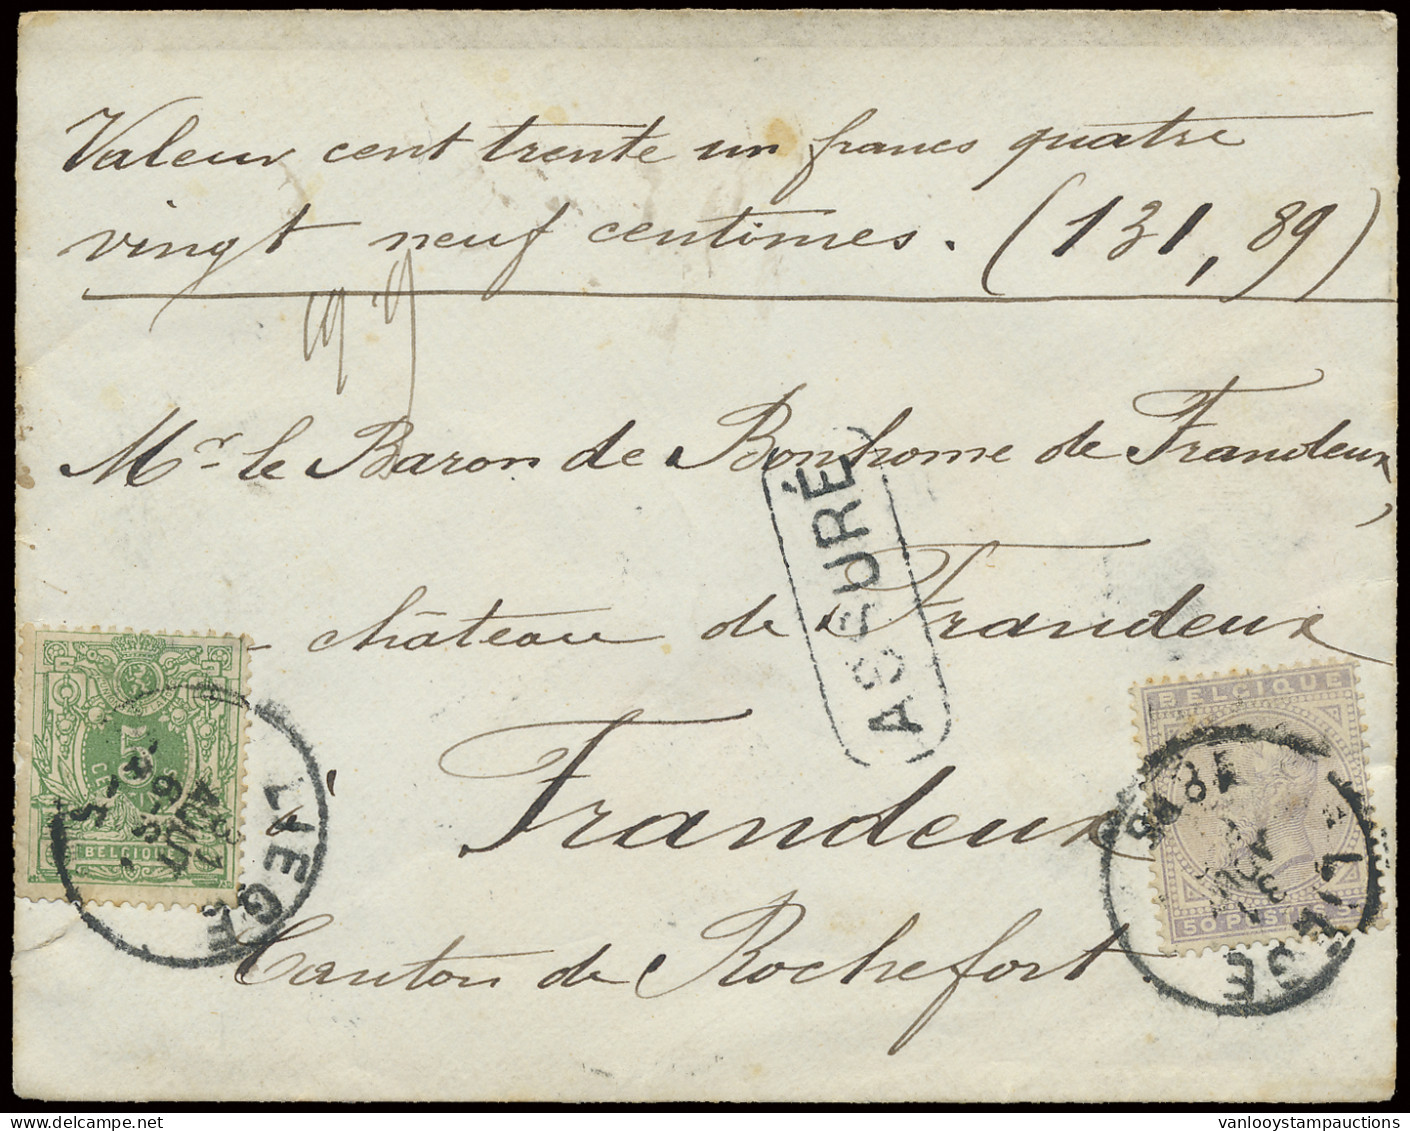 Valeur cent trente un francs quatre
vingt neuf centimes. (131,89)
Mr. le Baron de Bonhome de Frandeux,
ASSURÉ
château de Frandeux
à Frandeux
Canton de Rochefort
BELGIQUE
LIEGE
31
AOUT
BELGIQUE
50 POSTES 50
LIEGE
31
AOUT
vanlooystampauctions